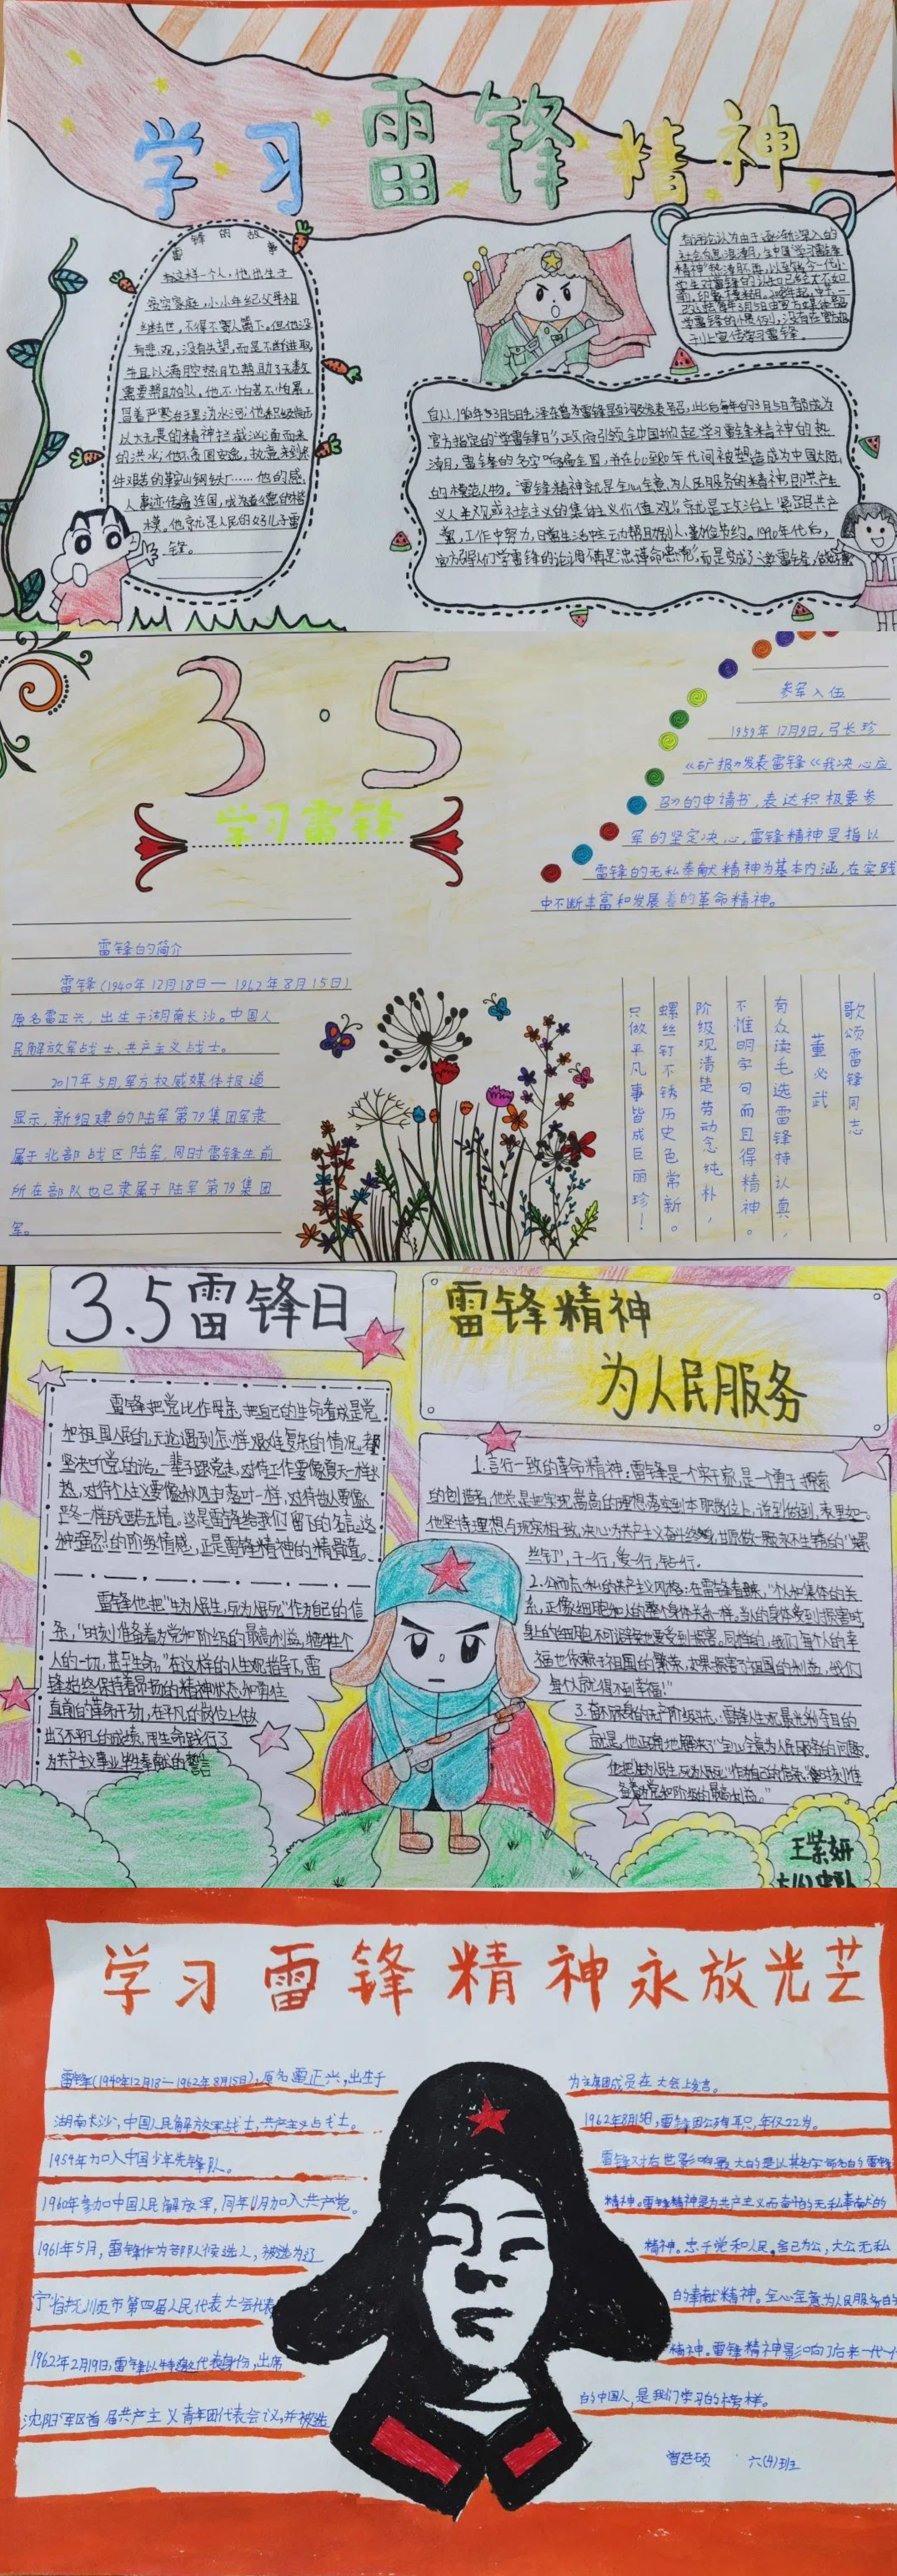 学习雷锋精神
雷锋的故事
有这样一个人，他出生于
贫穷家庭，小小年纪父母相
继去世，不得不寄人篱下。但他没
有悲观，没有失望，而是不断进取，
并且以满腔热自也帮助了无数
需要帮助的人，他不怕苦不怕累，
以大无畏的精神拦截汹涌而来
的洪水；他不贪图安逸，故意来到
件艰苦的鞍山钢铁厂……他的感
模。他就是人民的好儿子雷
锋。
有评论认为由于逐渐深入的
自从1963年3月5日毛泽东曾为雷锋题词发表号召，此后每年的3月5日都成为
官方指定的“学雷锋日”，政府引领全中国掀起学习雷锋精神的热
潮，雷锋的名字响遍全国，并在60到80年代间被塑造成为中国大陆
的模范人物。“雷锋精神”就是全心全意为人民服务的精神，即共产主
义人生观或社会主义的集体主义价值观。”就是正政治上紧跟共产
党，工作中努力，日常生活中主动帮助别人，勤俭节约。1990年代后，
3·5
学习雷锋
参军入伍
1959年12月9日，弓长珍
《矿报》发表雷锋《我决心应
召》的申请书，表达积极要参
军的坚定决心，雷锋精神是指以
雷锋的无私奉献精神为基本内涵，在实践
中不断丰富和发展着的革命精神。
雷锋的简介
雷锋（1940年12月18日—1962年8月15日）
原名雷正兴，出生于湖南长沙。中国人
民解放军战士、共产主义战士。
2017年5月，军方权威媒体报道
显示，新组建的陆军第79集团军隶
属于北部战区陆军，同时雷锋生前
所在部队也已隶属于陆军第79集团
军。
歌颂雷锋同志
董必武
有众读毛选雷锋特认真，
不惟明字句而且得精神。
阶级观清楚劳动念纯朴，
螺丝钉不锈历史色常新。
只做平凡事皆成巨丽珍！
3.5雷锋日
雷锋把党比作母亲，把自己的生命看成是党
和祖国人民的，无论遇到怎样艰难复杂的情况，都
坚决听党的话，一辈子跟党走，对待工作要像夏天一样火
热，对待个人主义要像秋风扫落叶一样，对待敌人要像
严冬一样残酷无情。这是雷锋给我们留下的名言。这
种强烈的阶级情感，正是雷锋精神的精髓。
雷锋他把“生为人民生，死为人民死”作为自己的信
条，“时刻准备着为党和阶级的最高利益，牺牲个
人的一切，甚至生命。”在这样的人生观指导下，雷
锋始终保持着昂扬的精神状态和勇往
直前的革命干劲，在平凡的岗位上做
出了不平凡的成绩，用生命践行了
为共产主义事业毕生奉献的誓言
雷锋精神
为人民服务
1.言行一致的革命精神：雷锋是一个实干家，是一个勇于探索
的创造者，他总是把实现崇高的理想落实到本职岗位上，说到做到，表里如一。
他坚持理想与现实相一致，决心为共产主义奋斗终身，甘愿做一颗永不生锈的“螺
丝钉”，干一行，爱一行，钻一行。
2.公而忘私的共产主义风格：在雷锋看来，“个人和集体的关
系，正像细胞和人的整个身体关系一样。当人的身体受到损害时
身上的细胞不可避免也要受到损害。同样的，我们每个人的幸
福也依赖于祖国的繁荣，如果损害了祖国的利益，我们
每个人就得不到幸福！”
3.奋不顾身的无产阶级斗志：雷锋人生观最光彩夺目的
就是，他正确地解决了“全心全意为人民服务”的问题。
他把“生为人民生，死为人民死”作为自己的信条，“时刻准
备着为党和阶级的最高利益。”
王紫妍
学习雷锋精神永放光芒
雷锋（1940年12月18—1962年8月15日），原名雷正兴，出生于
湖南长沙，中国人民解放军战士，共产主义战士。
1954年加入中国少年先锋队。
1960年参加中国人民解放军，同年11月加入共产党。
1961年5月，雷锋作为部队候选人，被选为辽
宁省抚顺市第四届人民代表大会代表
1962年2月19日，雷锋以特邀代表身份，出席
沈阳军区首届共产主义青年团代表会议，并被选
为主席团成员在大会上发言。
1962年8月15日，雷锋因公殉职，年仅22岁。
雷锋对后世影响最大的是以其名字命名的雷锋
精神。雷锋精神是为共产主义而奋斗的无私奉献的
精神。忠于党和人民。舍己为公，大公无私
的奉献精神。全心全意为人民服务的
精神。雷锋精神影响了后来一代一代
的中国人，是我们学习的榜样。
六（4）班